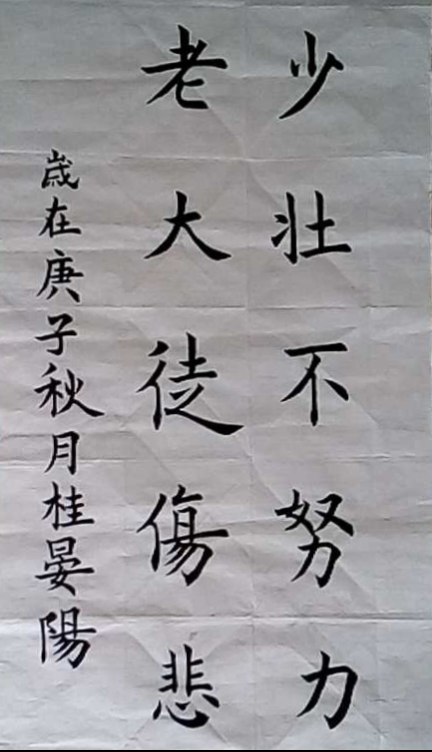 少壮不努力
老大徒傷悲
歳在庚子秋月桂晏陽